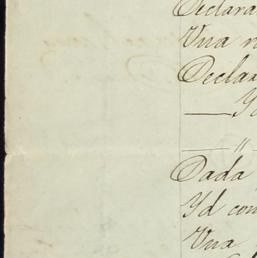 Declara
Una
Declar
— "
Dada
Yd con
Una